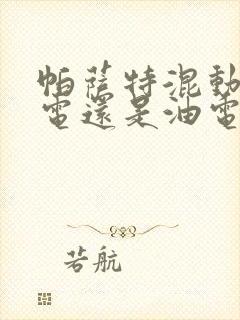 帕薩特混動
電還是油電
若航